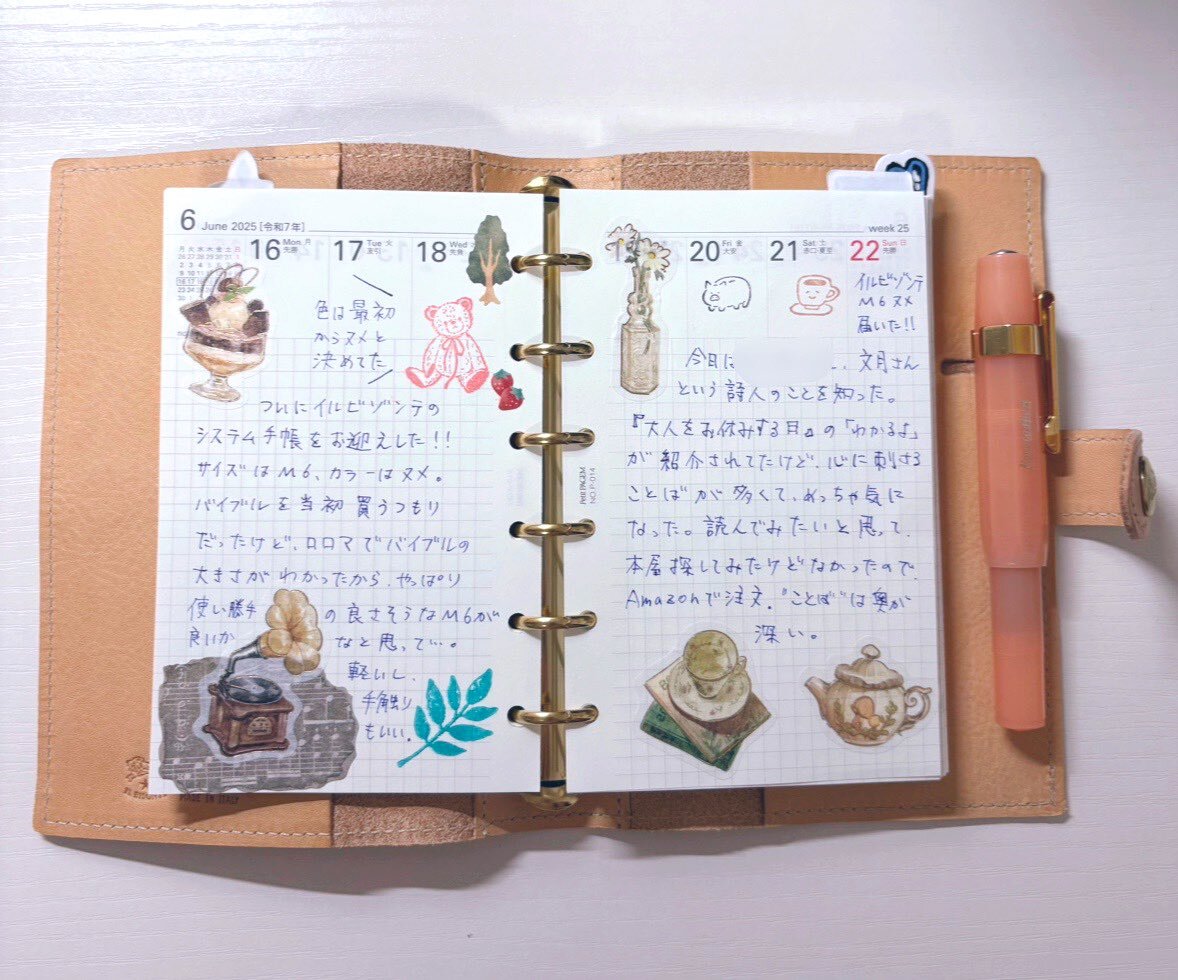 6 June 2025 [令和7年]
月 火 水 木 金 土 日
16 Mon 月 先勝
17 Tue 火 友引
18 Wed 先負
色は最初
からヌメと
決めてた
ついにイルビゾンテの
システム手帳をお迎えした!!
サイズはM6、カラーはヌメ。
バイブルを当初買うつもり
だったけど、ロロマでバイブルの
大きさがわかったから、やっぱり
使い勝手の良さそうなM6が
良いかなと思って…。
軽いし、
手触り
もいい。
MADE IN ITALY
PetitPAGEM
NO.P-014
week 25
20 Fri 金 大安
21 Sat 土 赤口・夏至
22 Sun 日 先勝
イルビゾンテ
M6ヌメ
届いた!!
今日に
文月さん
という詩人のことを知った。
『大人をお休みする日』の「わかるよ」
が紹介されてたけど、心に刺さる
ことばが多くて、めっちゃ気に
なった。読んでみたいと思って、
本屋探してみたけどなかったので、
Amazonで注文。"ことば"は奥が
深い。